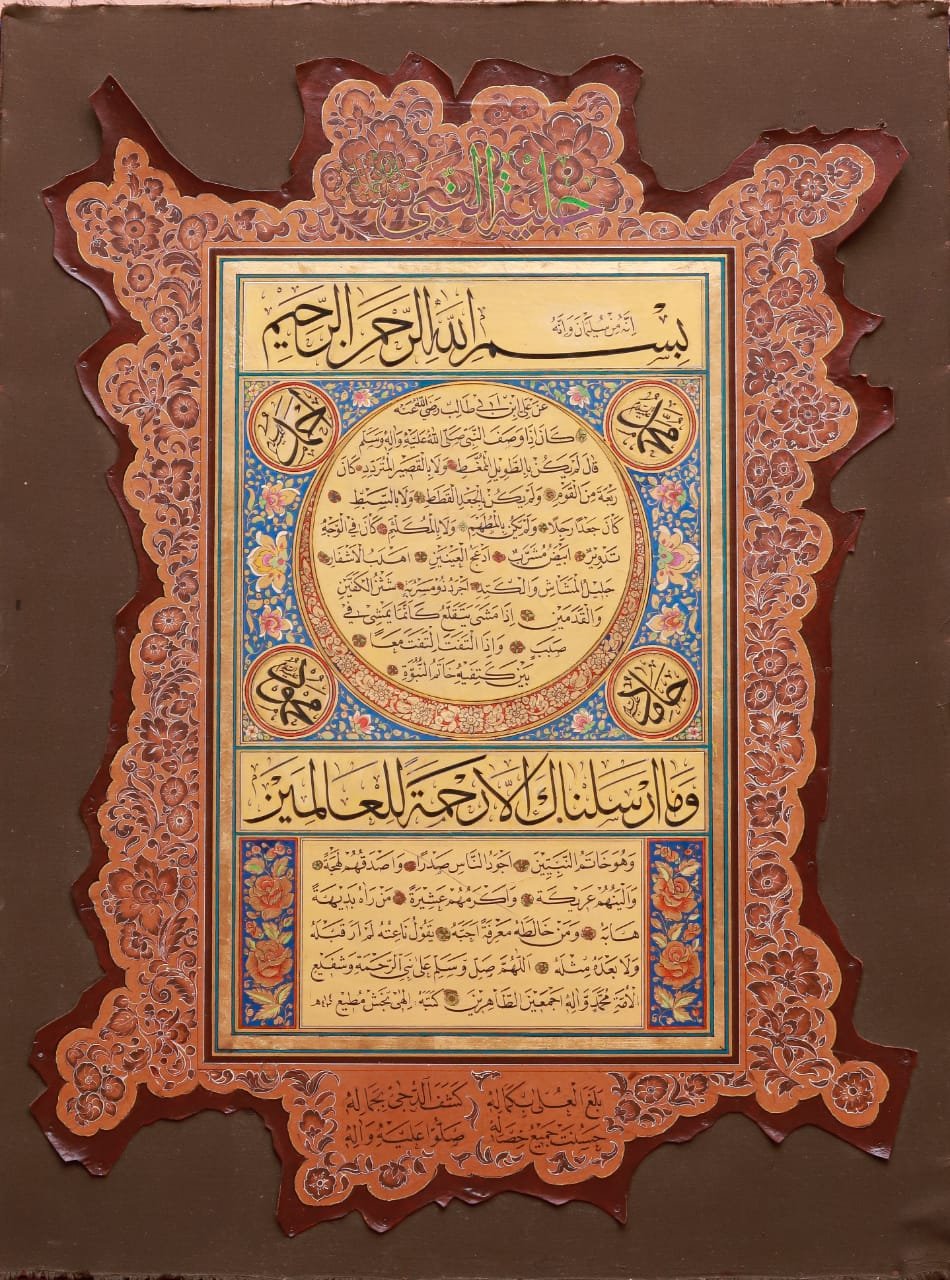 حلية النبي
بِسْمِ اللهِ الرَّحْمٰنِ الرَّحِيْمِ
اِنَّهُ مِنْ سُلَيْمَانَ وَاِنَّهُ
مُحَمَّد
اَحْمَد
عن علي ابن ابي طالب رضي الله عنه
كان اذا وصف النبي صلى الله عليه واله وسلم
قال لم يكن بالطويل الممغط ولا بالقصير المتردد كان
ربعة من القوم ولم يكن بالجعد القطط ولا بالسبط
كان جعدا رجلا ولم يكن بالمطهم ولا بالمكلثم كان في الوجه
تدوير ابيض مشرب ادعج العينين اهدب الاشفار
جليل المشاش والكتد اجرد ذو مسربة شثن الكفين
والقدمين اذا مشى يتقلع كانما يمشي في
صبب واذا التفت التفت معا
بين كتفيه خاتم النبوة
حامد
محمود
وَمَا اَرْسَلْنَاكَ اِلَّا رَحْمَةً لِلْعَالَمِيْنَ
وهو خاتم النبيين اجود الناس صدرا واصدقهم لهجة
والينهم عريكة واكرمهم عشيرة من رآه بديهة
هابه ومن خالطه معرفة احبه يقول ناعته لم ار قبله
ولا بعده مثله اللهم صل وسلم على نبي الرحمة وشفيع
الامة محمد واله اجمعين الطاهرين كتبه الهي بخش مطيع
بلغ العلى بكماله كشف الدجى بجماله
حسنت جميع خصاله صلوا عليه واله